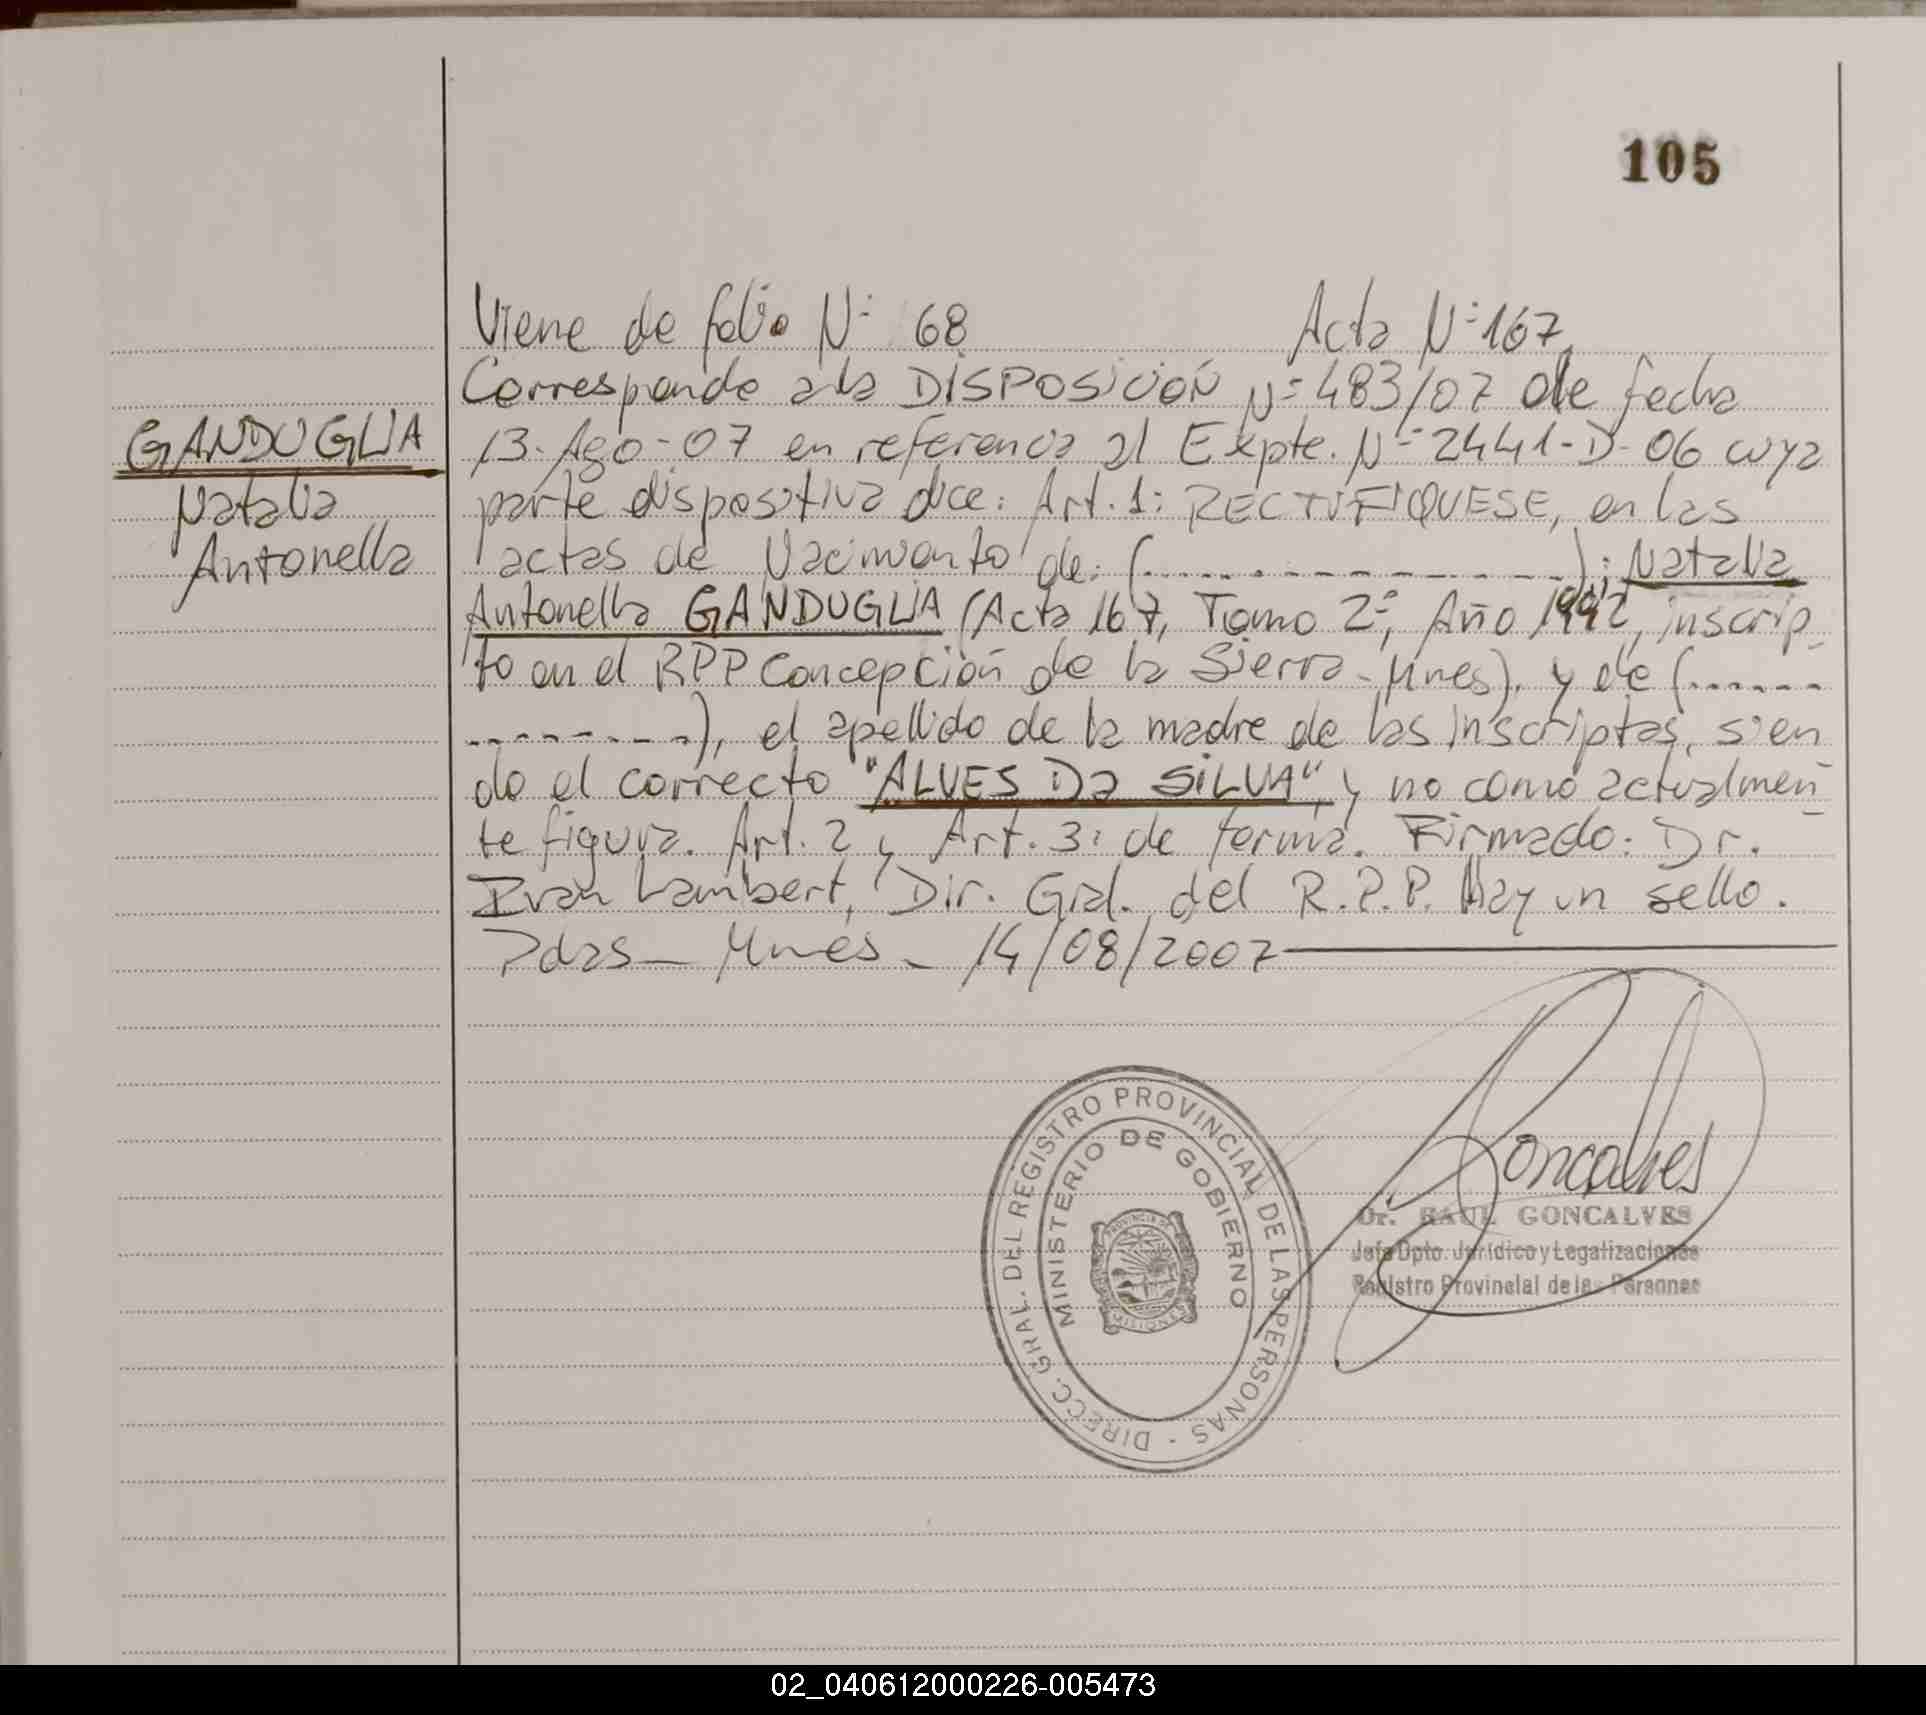 105
Viene de folio Nº 68 Acta Nº 167
Corresponde a la DISPOSICIÓN Nº 483/07 de fecha
GANDUGLIA
Natalia
Antonella
13-Ago-07 en referencia al Expte. Nº 2441-D-06 cuya
parte dispositiva dice: Art. 1: RECTIFIQUESE, en las
actas de Nacimiento de: (................): Natalia
Antonella GANDUGLIA (Acta 167, Tomo 2º, Año 1992, inscrip-
to en el RPP Concepción de la Sierra - Mnes), y de (......
.........), el apellido de la madre de las inscriptas, sien
do el correcto "ALVES Da SILVA", y no como actualmen-
te figura. Art. 2 y Art. 3: de forma. Firmado: Dr.
Ivan Lambert, Dir. Gral. del R.P.P. Hay un sello.
Pdas - Mnes - 14/08/2007
DIRECC. GRAL. DEL REGISTRO PROVINCIAL DE LAS PERSONAS -
MINISTERIO DE GOBIERNO
PROVINCIA DE
MISIONES
Goncalves
Dr. RAUL GONCALVES
Jefe Dpto. Jurídico y Legalizaciones
Registro Provincial de las Personas
02_040612000226-005473